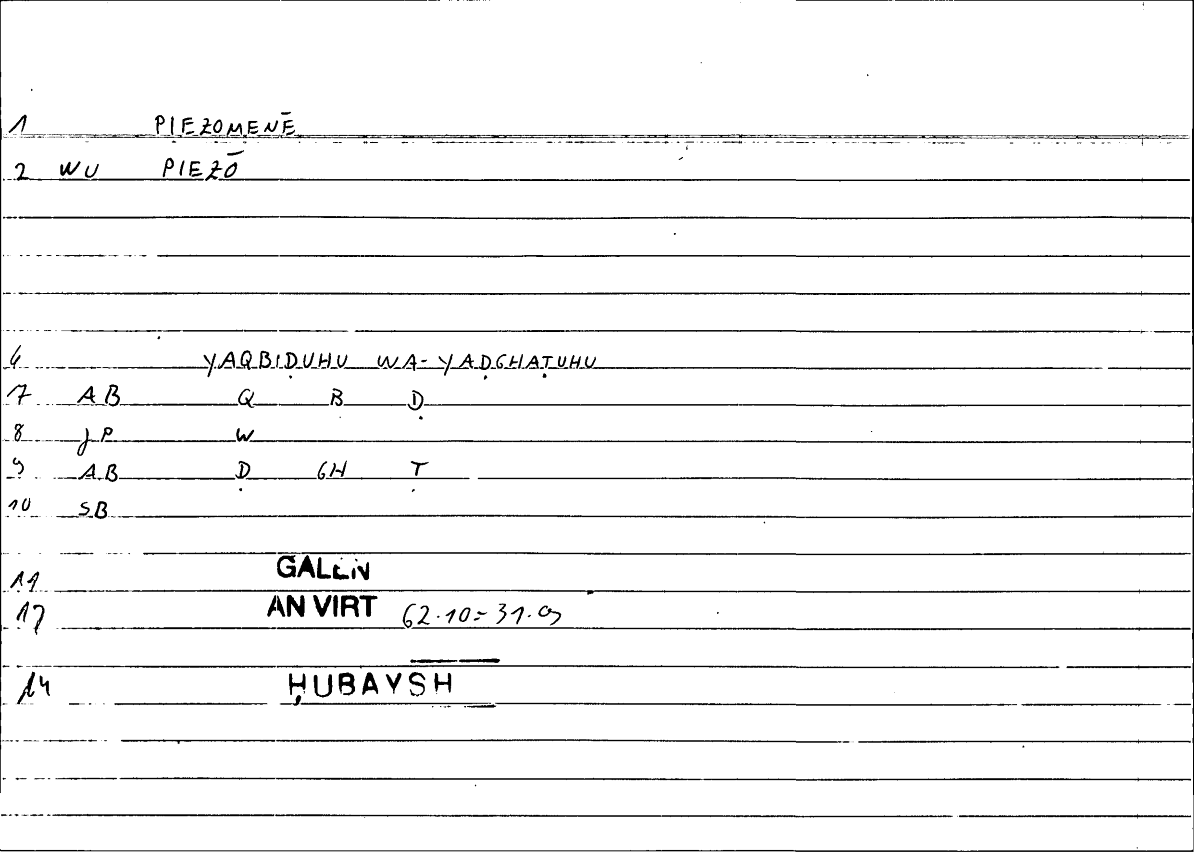 1 PIEZOMENĒ
2 WU PIEZŌ
6 YAQBIḌUHU WA-YAḌGHAṬUHU
7 AB Q B Ḍ
8 JP W
9 AB Ḍ GH Ṭ
10 SB
11 GALEN
12 AN VIRT 62.10=31.09
14 ḤUBAYSH